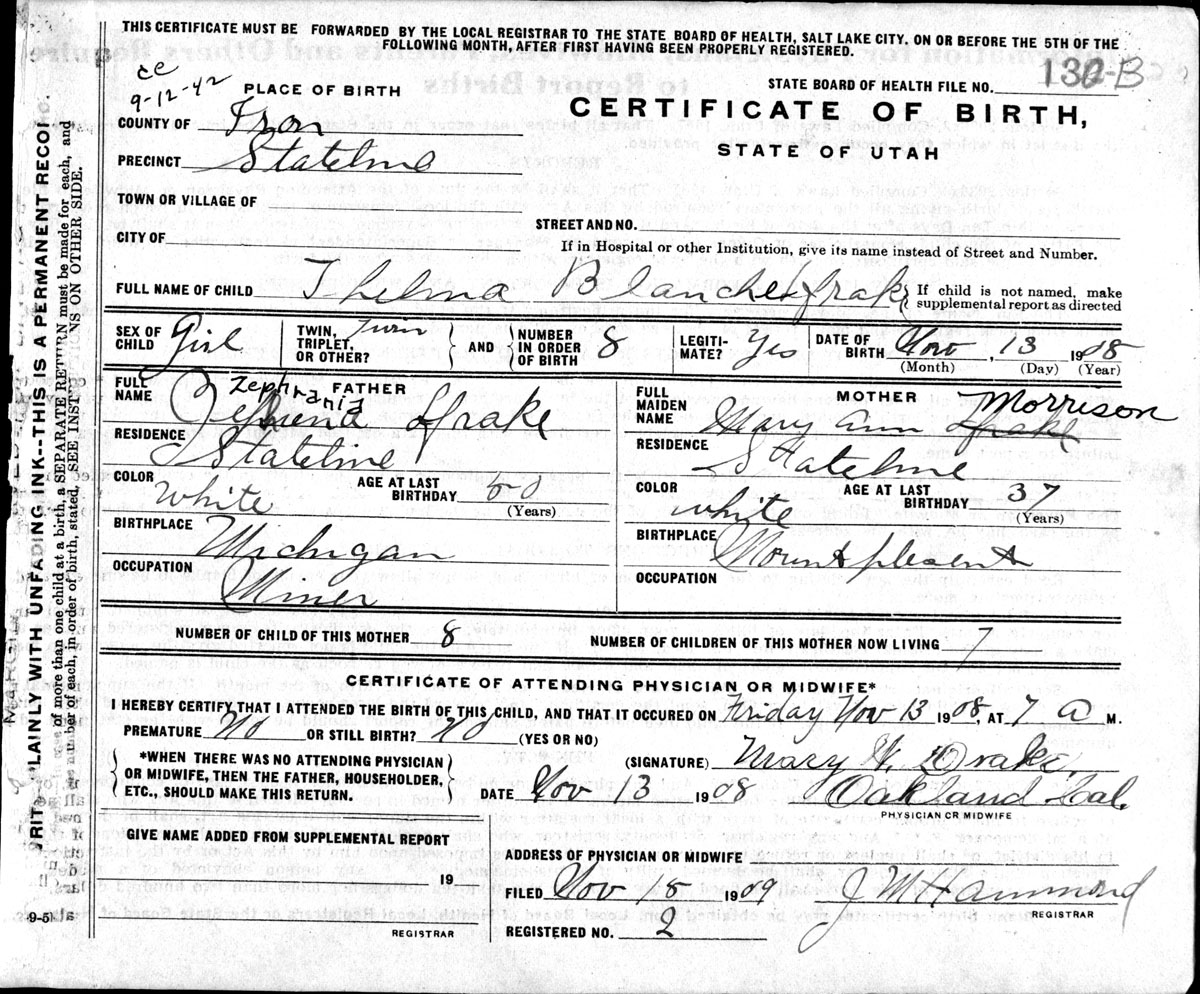 THIS CERTIFICATE MUST BE FORWARDED BY THE LOCAL REGISTRAR TO THE STATE BOARD OF HEALTH, SALT LAKE CITY, ON OR BEFORE THE 5TH OF THE
FOLLOWING MONTH, AFTER FIRST HAVING BEEN PROPERLY REGISTERED.
ce
9-12-42
STATE BOARD OF HEALTH FILE NO. 130-B
PLACE OF BIRTH
CERTIFICATE OF BIRTH,
STATE OF UTAH
COUNTY OF Iron
PRECINCT Stateline
TOWN OR VILLAGE OF
STREET AND NO.
CITY OF
If in Hospital or other Institution, give its name instead of Street and Number.
FULL NAME OF CHILD Thelma Blanche Drake
If child is not named, make
supplemental report as directed
SEX OF CHILD Girl TWIN, TRIPLET, OR OTHER? Twin AND NUMBER IN ORDER OF BIRTH 8 LEGITIMATE? Yes DATE OF BIRTH Nov, 13 1908
(Month) (Day) (Year)
FATHER
FULL NAME Zephrania Drake
RESIDENCE Stateline
COLOR White AGE AT LAST BIRTHDAY (Years)
BIRTHPLACE Michigan
OCCUPATION Miner
MOTHER
FULL MAIDEN NAME Mary Ann Drake Morrison
RESIDENCE Stateline
COLOR White AGE AT LAST BIRTHDAY 37 (Years)
BIRTHPLACE Mount plesent
OCCUPATION
NUMBER OF CHILD OF THIS MOTHER 8 NUMBER OF CHILDREN OF THIS MOTHER NOW LIVING 7
CERTIFICATE OF ATTENDING PHYSICIAN OR MIDWIFE*
I HEREBY CERTIFY THAT I ATTENDED THE BIRTH OF THIS CHILD, AND THAT IT OCCURED ON Friday Nov 13 1908, AT 7 a M.
PREMATURE No OR STILL BIRTH? No (YES OR NO)
*WHEN THERE WAS NO ATTENDING PHYSICIAN
OR MIDWIFE, THEN THE FATHER, HOUSEHOLDER,
ETC., SHOULD MAKE THIS RETURN.
(SIGNATURE) Mary H. Drake,
DATE Nov 13 1908 Oakland Cal.
PHYSICIAN OR MIDWIFE
GIVE NAME ADDED FROM SUPPLEMENTAL REPORT
19
REGISTRAR
ADDRESS OF PHYSICIAN OR MIDWIFE
FILED Nov 18 1909 J M Hammond
REGISTRAR
REGISTERED NO. 2
WRITE PLAINLY WITH UNFADING INK--THIS IS A PERMANENT RECOR
of more than one child at a birth, a SEPARATE RETURN must be made for each, and
number of each, in order of birth, stated. SEE INSTRUCTIONS ON OTHER SIDE.